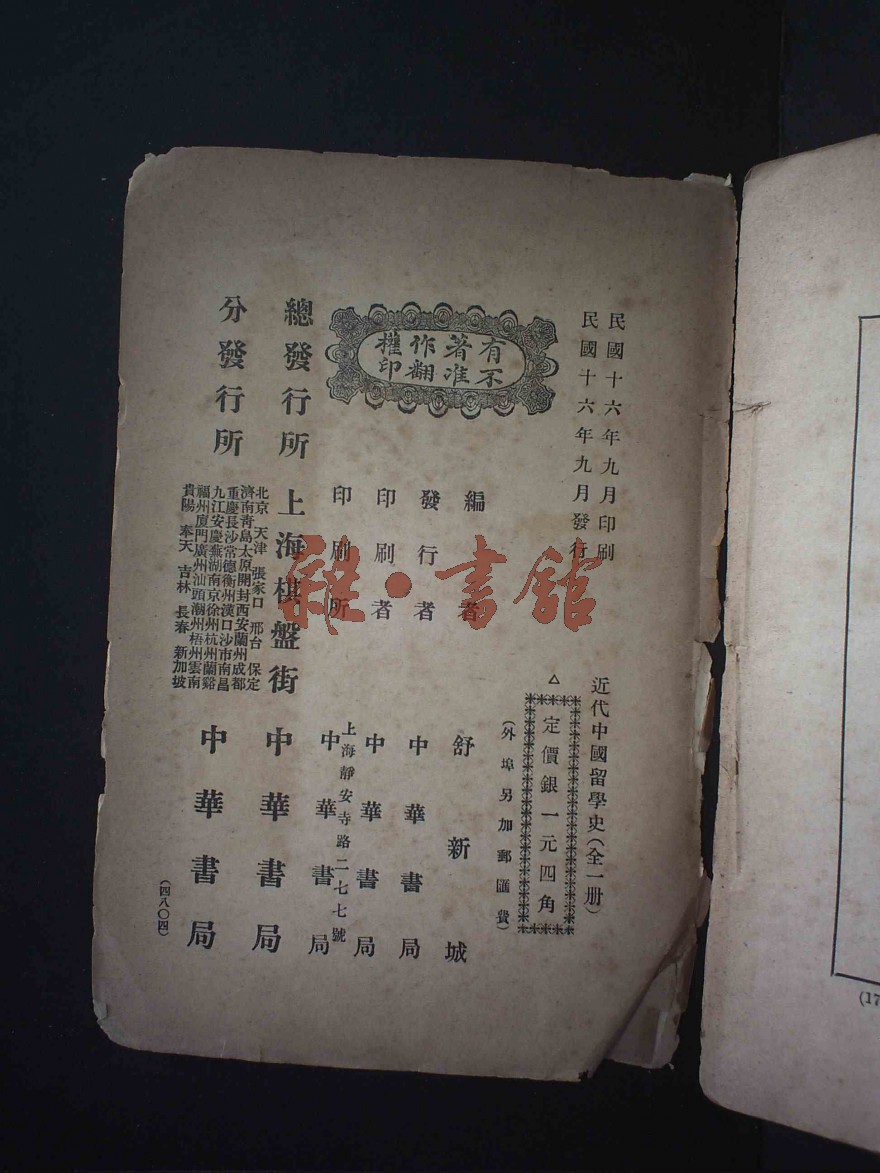 民國十六年九月印刷
民國十六年九月發行
近代中國留學史（全一册）
△定價銀一元四角
（外埠另加郵匯費）
有著作權
不准翻印
編者 舒新城
發行者 中華書局
印刷者 中華書局
上海靜安寺路二七七號
印刷所 中華書局
總發行所 上海棋盤街 中華書局
分發行所 中華書局
北京 天津 張家口 邢台 保定
濟南青島太原開封西安蘭州成都
重慶長沙常德衡州漢口沙市南昌
九江安慶蕪湖南京徐州杭州蘭谿
福州廈門廣州汕頭潮州梧州雲南
貴陽 奉天 吉林 長春 新加坡
（四八〇四）
雜·書館
(17